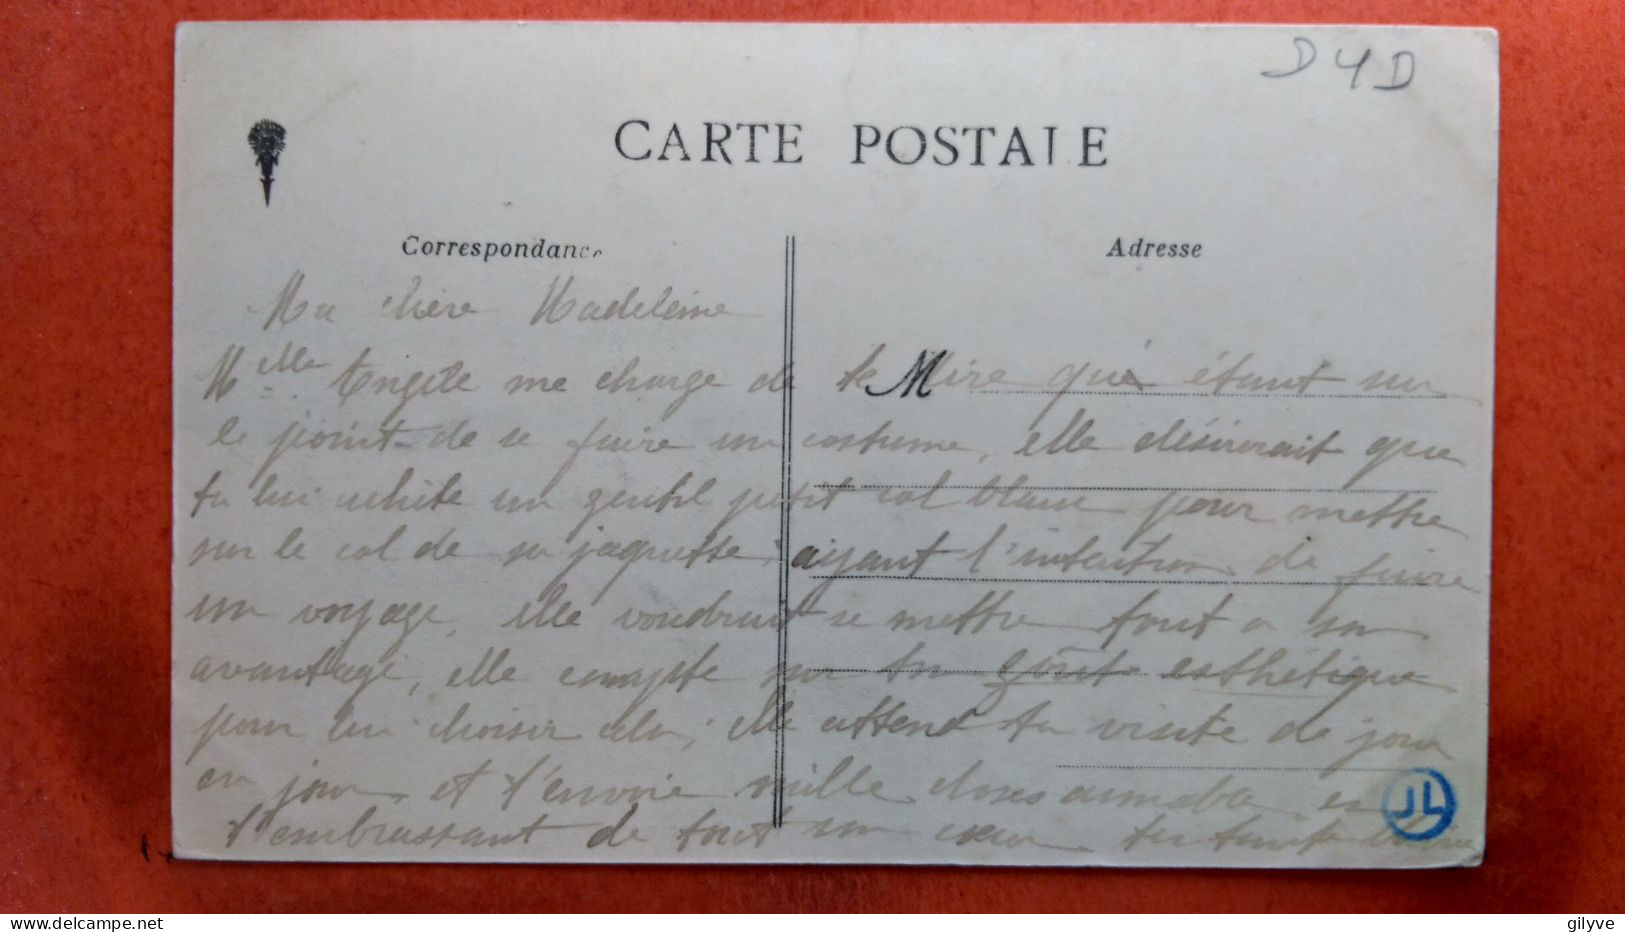 D4D
CARTE POSTALE
Correspondance
Adresse
Ma chère Madeleine
Melle me charge de te M dire qui étant sur
le point de se faire un costume, elle désirerait que
tu lui achète un gentil petit col blanc pour mettre
sur le col de sa jaquette, ayant l'intention de faire
un voyage, elle voudrait se mettre tout a son
avantage, elle compte sur ton goût esthétique
pour lui choisir cela, elle attend ta visite de jour
en jour et t'envoie mille choses aimables en
t'embrassant de tout son cœur ta tante
JL
gilyve